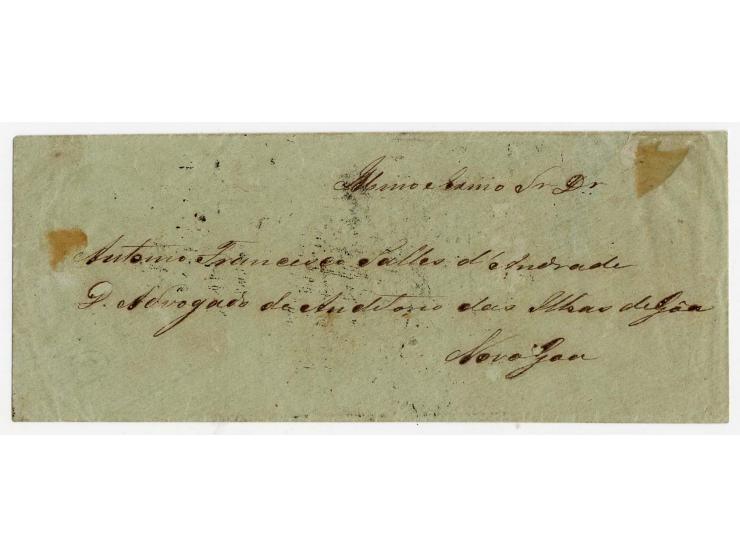 Illmo e Exmo Sr. Dr.
Antonio Francisco Salles d'Andrade
D. Advogado do Auditorio das Ilhas de Gôa
Nova Goa